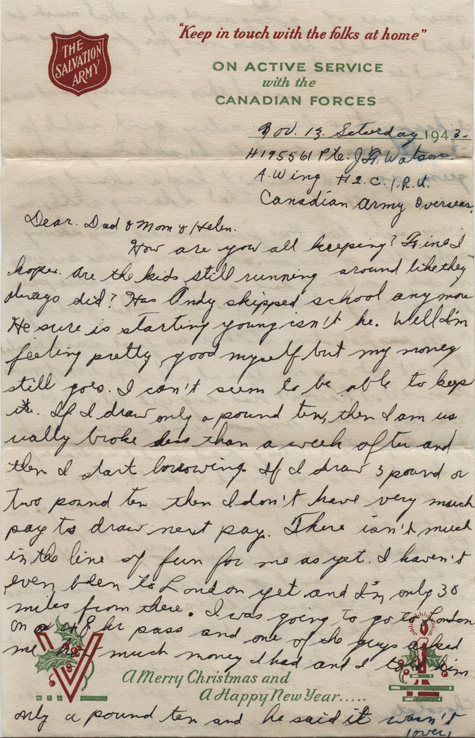 THE
SALVATION
ARMY
"Keep in touch with the folks at home"
ON ACTIVE SERVICE
with the
CANADIAN FORCES
Nov. 13. Saturday 1943.
H195561 Pte. J.F. Watson
A. Wing H2.C.I.R.U.
Canadian Army Overseas
Dear. Dad & Mom & Helen.
How are you all keeping? Fine I
hope. Are the kids still running around like they
always did? Has Andy skipped school any more
He sure is starting young isn't he. Well I'm
feeling pretty good myself but my money
still goes. I can't seem to be able to keep
it. If I draw only a pound ten, then I am us
ually broke less than a week after and
then I start borrowing. If I draw 3 pound or
two pound ten then I don't have very much
pay to draw next pay. There isn't much
in the line of fun for me as yet. I haven't
even been to London yet and I'm only 30
miles from there. I was going to go to London
on a 48 hr pass and one of the guys asked
me much money I had and I told him
A Merry Christmas and
A Happy New Year.....
only a pound ten and he said it wasn't
(over)